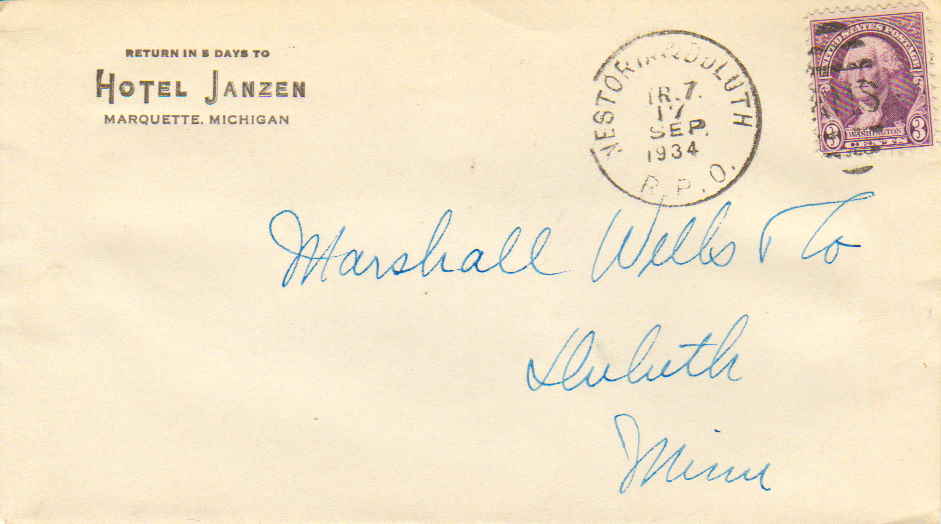 RETURN IN 5 DAYS TO
HOTEL JANZEN
MARQUETTE, MICHIGAN
NESTORIA & DULUTH
TR. 7.
17
SEP.
1934
R.P.O.
UNITED STATES POSTAGE
3 WASHINGTON 3
Marshall Wells & Co
Duluth
Minn